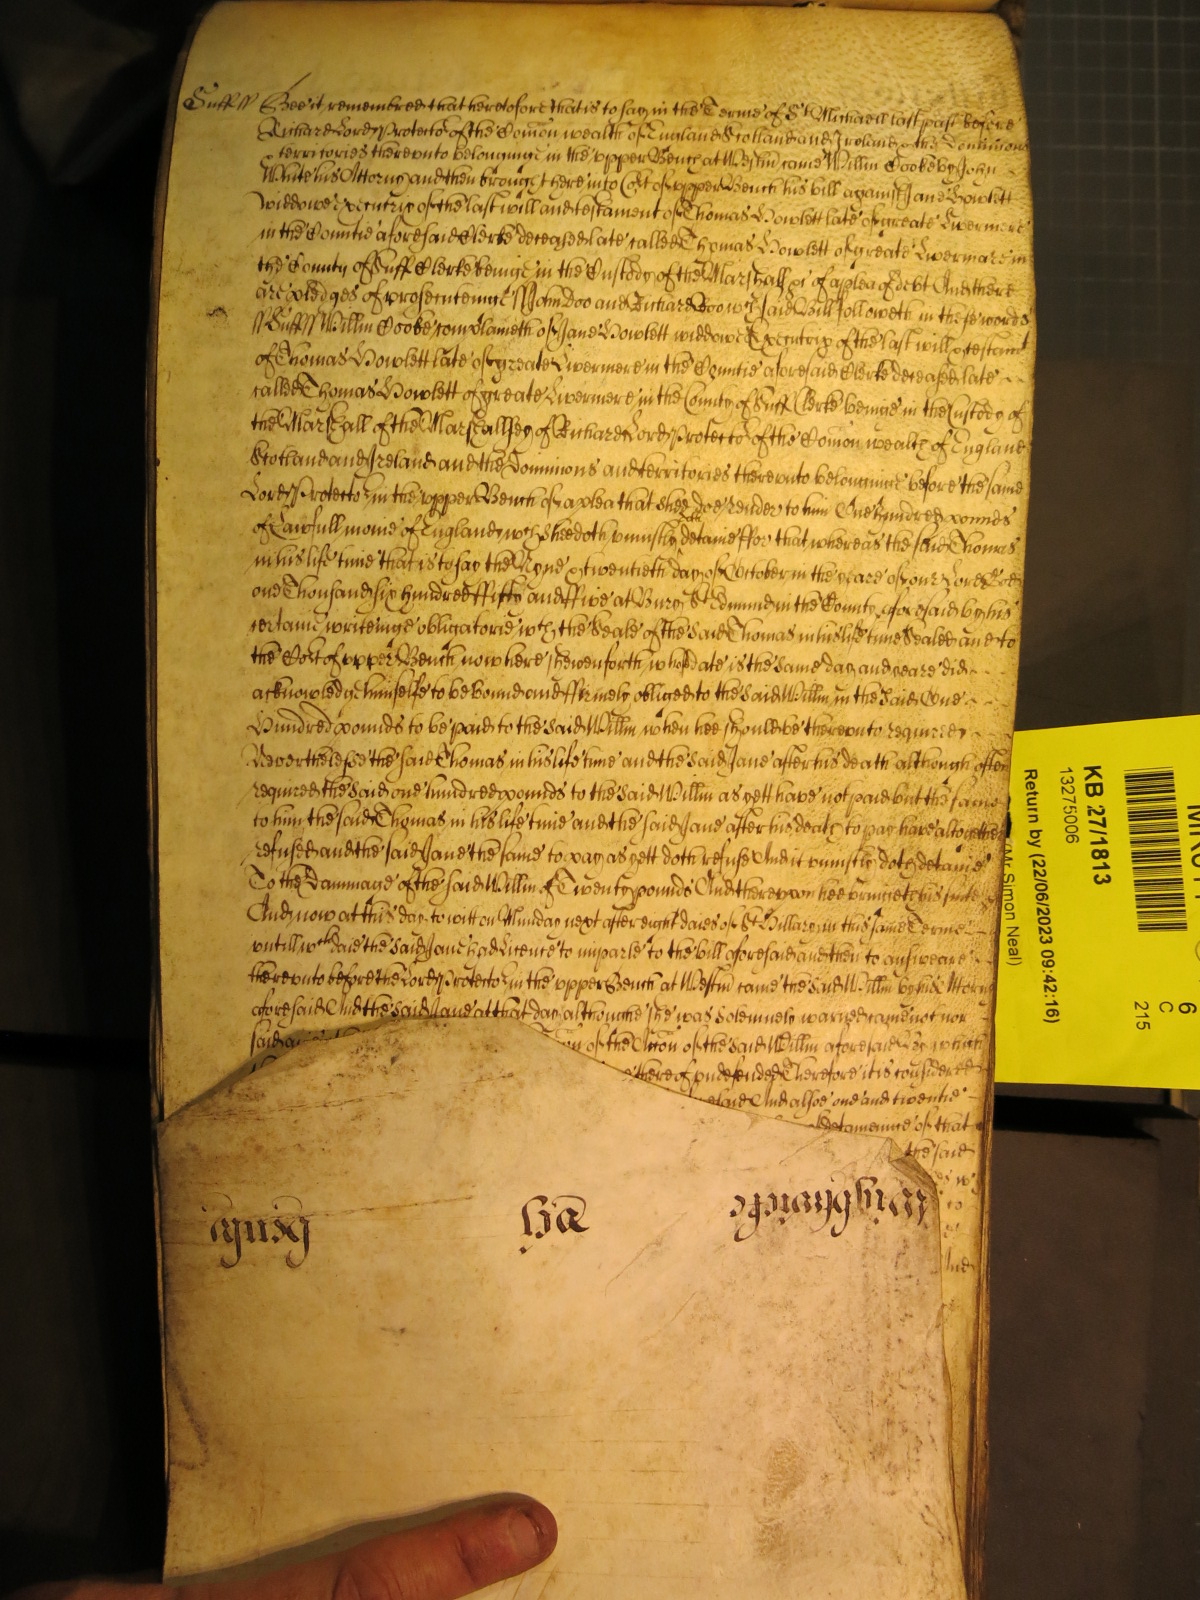 Suff ss Bee it remembred that heretofore that is to say in the Terme of St Michaell last past before
Richard Lord Protector of the Comon wealth of England Scotland and Ireland & the Dominions
& territories thereunto belonginge in the upper Bench at Westm came Willm Cooke by John
White his Attorny and then brought here into Cort of upper Bench his bill against Jane Howlett
widdowe Executrix of the last will and testament of Thomas Howlett late of greate Livermere
in the Countie aforesaid Clerke deceased late called Thomas Howlett of greate Livermere in
the County of Suff Clerke beinge in the Custody of the Marshall &c of a plea of debt And there
are pledges of prosecutinge ss John Doo and Richard Roo wch said Bill followeth in these words
ss Suff ss Willm Cooke complaineth of Jane Howlett widdowe Executrix of the last will & testamt
of Thomas Howlett late of greate Livermere in the Countie aforesaid Clerke deceased late
called Thomas Howlett of greate Livermere in the County of Suff Clerke beinge in the Custody of
the Marshall of the Marshallsey of Richard Lord Protector of the Comon wealth of England
Scotland and Ireland and the Dominions and territories thereunto belonginge before the same
Lord Protector in the upper Bench of a plea that shee doe render to him One hundred pounds
of Lawfull monie of England wch shee doth uniustly detaine ffor that whereas the said Thomas
in his life time that is to say the Nyne & twentieth day of October in the yeare of our Lord God
one Thousand six hundred ffifty and ffive at Bury St Edmund in the County aforesaid by his
certaine writeinge obligatorie wth the Seale of the said Thomas in his life time Sealed and to
the Cort of upper Bench now here shewen forth whose date is the same day and yeare did
acknowledge himselfe to be bound and ffirmely obliged to the said Willm in the said One
Hundred pounds to be paid to the said Willm when hee should be thereunto required
Neverthelesse the said Thomas in his life time and the said Jane after his death although often
required the said one hundred pounds to the said Willm as yett have not paid but the same
to him the said Thomas in his life time and the said Jane after his death to pay have altogether
refused and the said Jane the same to pay as yett doth refuse And it uniustly doth detaine
To the Dammage of the said Willm of Twenty pounds And thereupon hee bringeth his suite
And now at this day to witt on Munday next after eight daies of St Hillary in this same Terme
untill wch daie the said Jane had Licence to imparle to the bill aforesaid and then to answeare
thereunto before the Lord Protector in the upper Bench at Westm came the said Willm by his Attorny
aforesaid And the said Jane at that day althoughe she was solemnely warned came not nor
said of the Accon of the said Willm aforesaid By which
thereof undefended Therefore it is considered
And alsoe one and twentie
detaineinge of that
the said
to
And
KB 27/1813
13275006
Return by (22/06/2023 09:42:16)
(Mr Simon Neal)
6
C
215